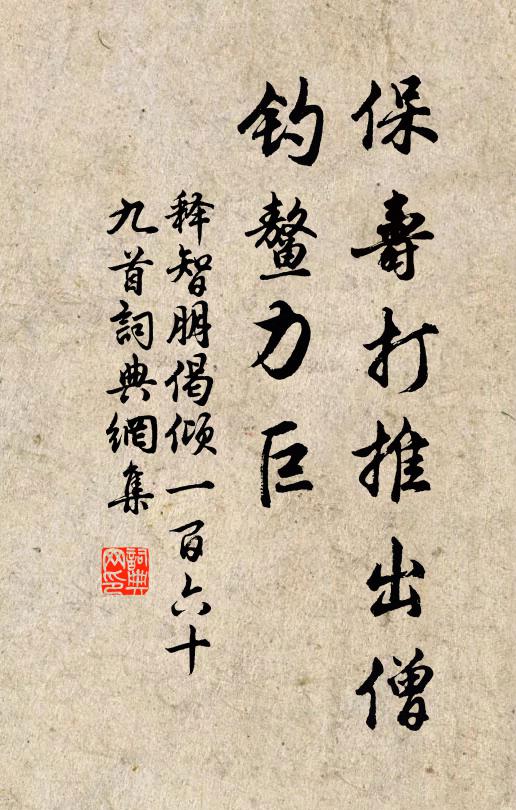 保壽打推出僧
钓鳌力巨
释智朋偈倾一百六十
九首詞典網集
詞典网印